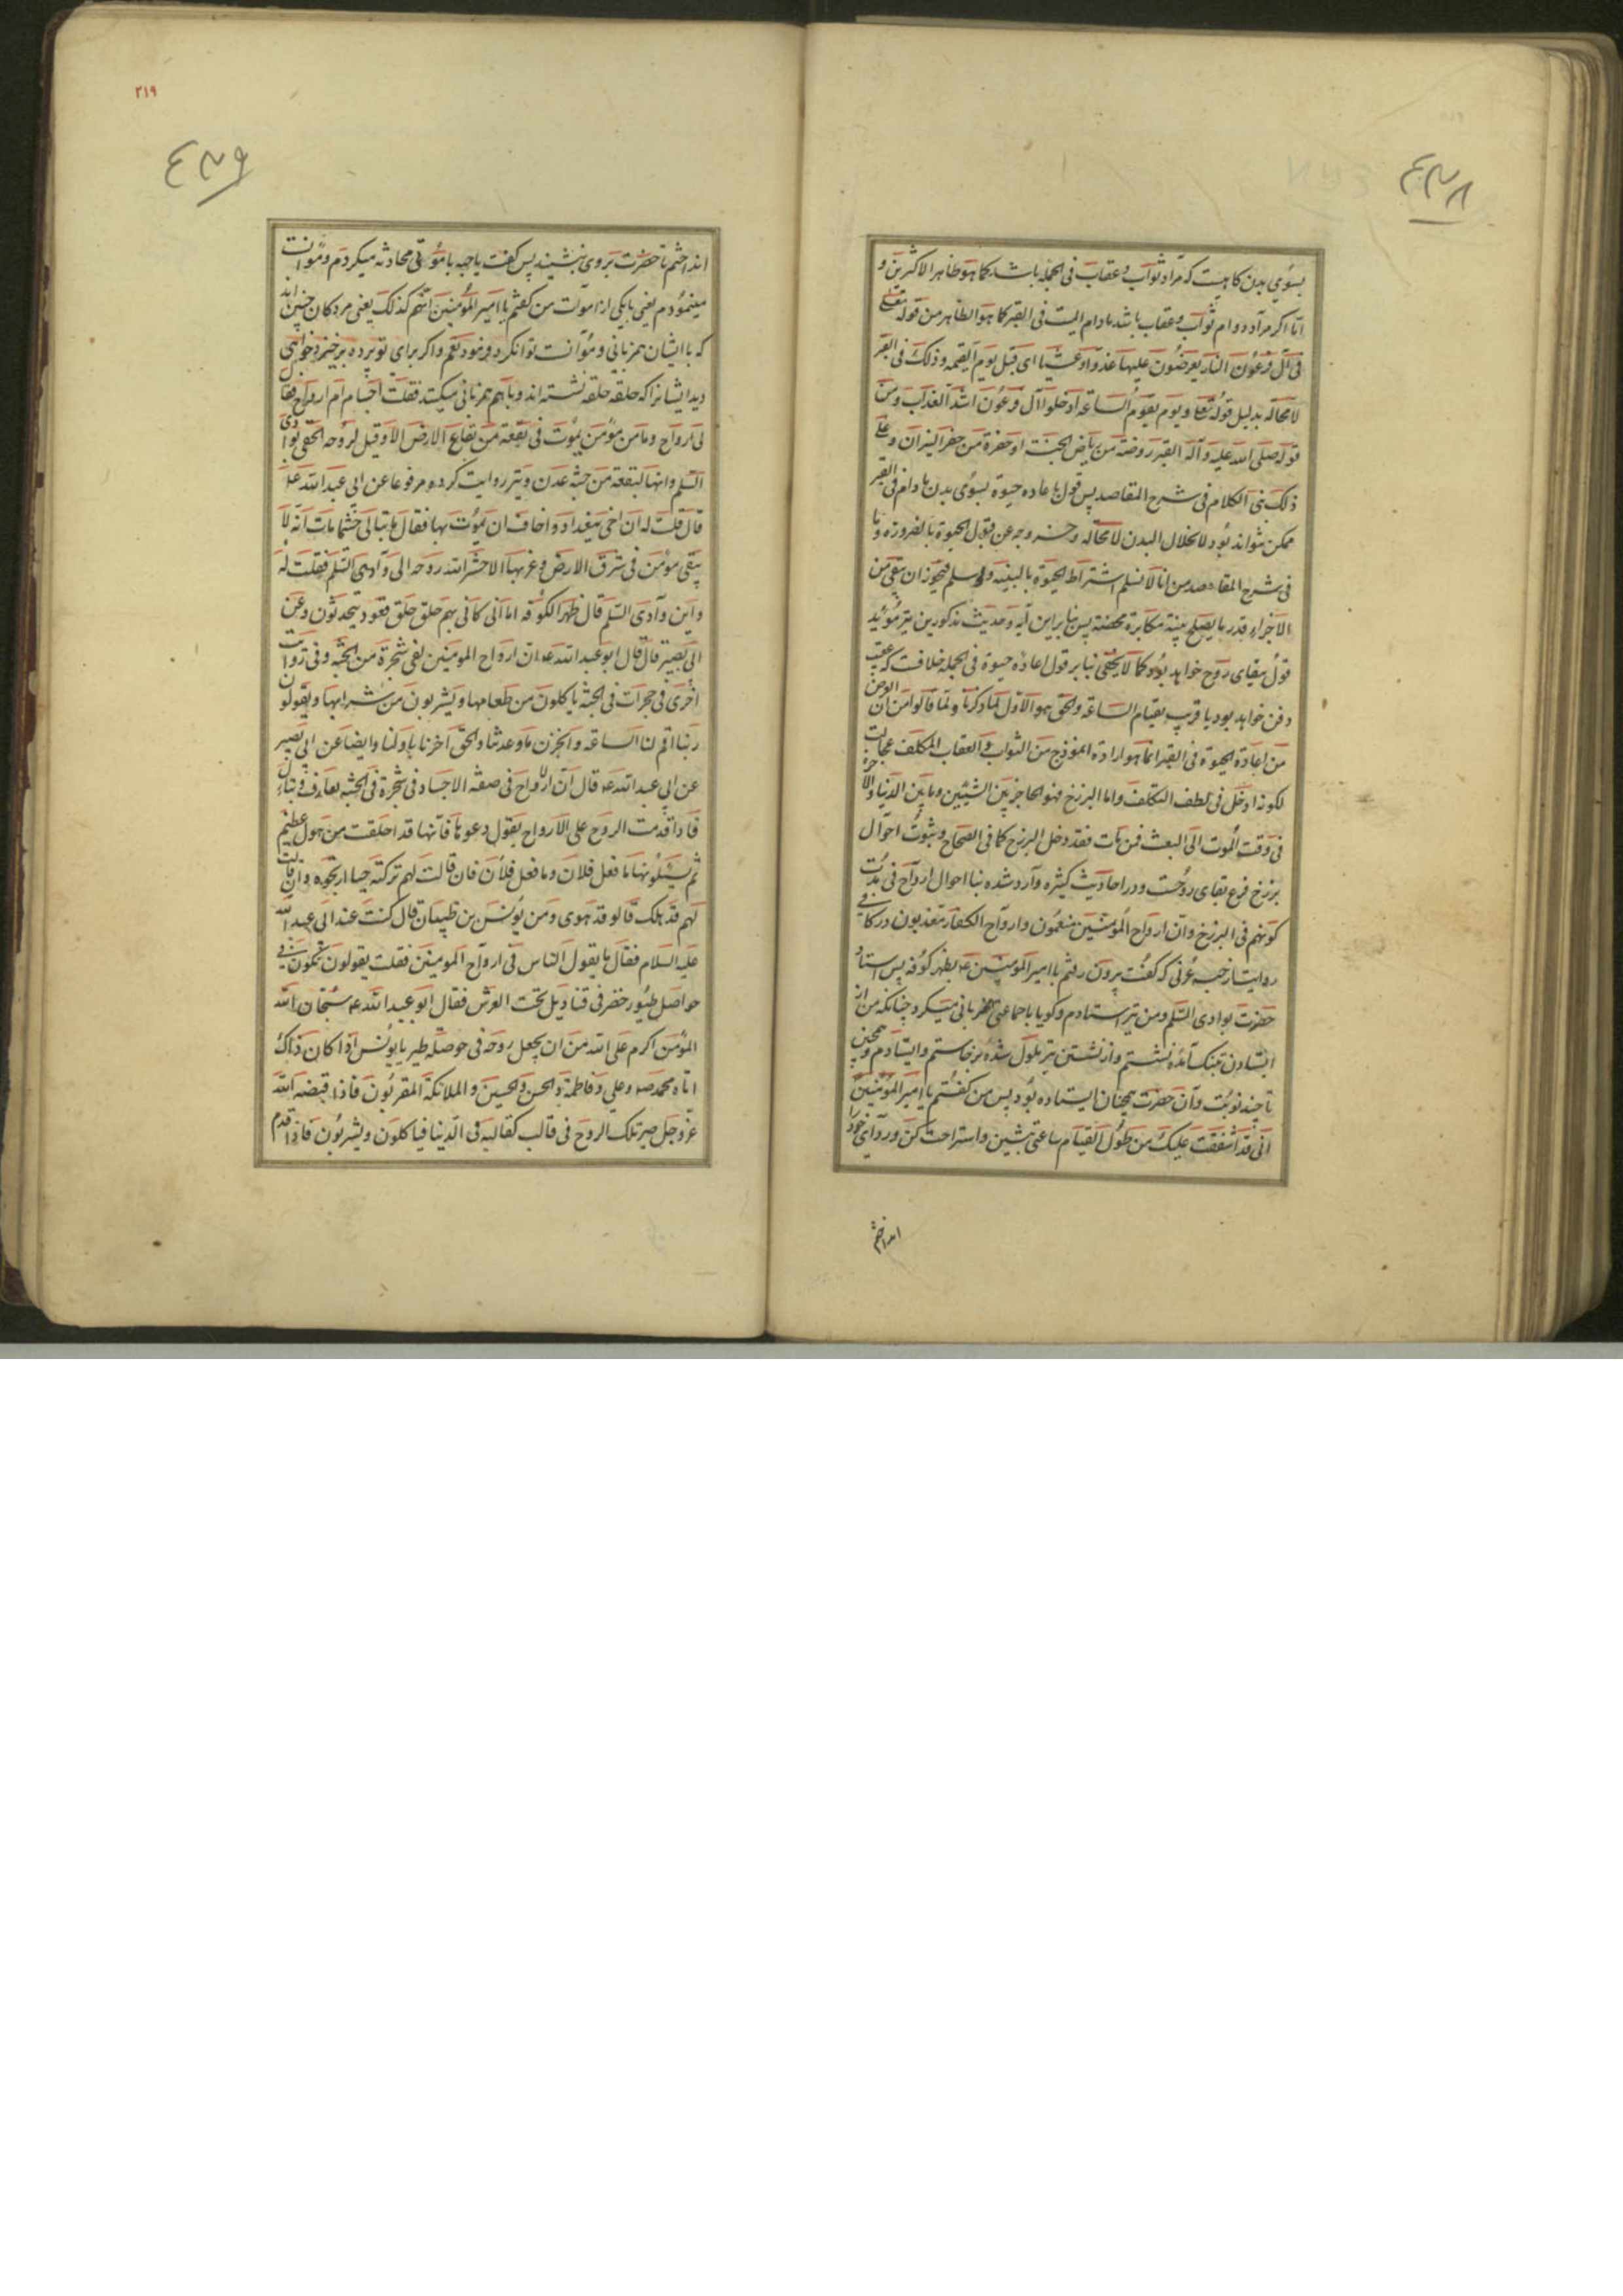 ۴۳۸
بسوی بدن کاهیست که مراد ثواب و عقاب فی الجمله باشد کما هو ظاهر الاکثرین و
اما اکر مراد دوام ثواب و عقاب باشد مادام المیت فی القبر کما هو الظاهر من قوله تعالی
فی آل فرعون النار یعرضون علیها غدوا و عشیا ای قبل یوم القیمه و ذلک فی القبر
لا محاله بدلیل قوله تعا و یوم یقوم الساعه ادخلوا آل فرعون اشد العذاب و من
قوله صلی الله علیه و آله القبر روضة من ریاض الجنة او حفرة من حفر النیران و علی
ذلک بنی الکلام فی شرح المقاصد پس قول باعاده حیوة بسوی بدن مادام فی القبر
ممکن نتواند بود لانحلال البدن لا محاله و خروجه عن قبول الحیوة بالضروره و ما
فی شرح المقاصد من انا لا نسلم اشتراط الحیوة بالبنیه و لو سلم فیجوز ان یبقی من
الاجزاء قدر ما یصلح بنیة مکابرة محضة پس بنابراین آیه و حدیث مذکورین نیز مؤید
قول ببقای روح خواهد بود کما لا یخفی بنابر قول اعاده حیوة فی الجمله خلافست که عقیب
دفن خواهد بود یا قریب بقیام الساعه و الحق هو الاول لما ذکرنا و لما قالوا من ان الغرض
من اعادة الحیوة فی القبر انما هو ارادة انموذج من الثواب و العقاب المکلف عجالت
لکونه ادخل فی لطف التکلف و اما البرزخ فهو الحاجز بین الشیئین و ما بین الدنیا و الاخره
فی وقت الموت الی البعث فمن مات فقد دخل البرزخ کما فی الصحاح و ثبوت احوال
برزخ فرع بقای روحست و در احادیث کثیره وارد شده بنا احوال ارواح فی مدت
کونهم فی البرزخ و ان ارواح المومنین منعمون و ارواح الکفار معذبون در کافی
روایت از حبه عرنی که کفت بیرون رفتم با امیر المومنین ع بظهر کوفه پس استاد
حضرت بوادی السلم و من نیز استادم و کویا با جماعتی همزبانی میکرد چنانکه من از
ایستادن بتنک آمده نشستم و از نشستن نیز ملول شده برخاستم و ایستادم و همچنین
تا چند نوبت و آن حضرت همچنان ایستاده بود پس من کفتم یا امیر المومنین
انی قد اشفقت علیک من طول القیام ساعتی بنشین و استراحت کن و ردای خود را
انداختم
۲۱۹
۴۳۹
انداختم تا حضرت بروی بنشیند پس کفت یا حبه با مؤمنی محادثه میکردم و موانست
مینمودم یعنی با یکی از اموات من کفتم یا امیر المومنین انهم کذلک یعنی مردکان چنین اند
که با ایشان همزبانی و موانست توان کرد فرمود نعم و اکر برای تو پرده برخیزد خواهی
دید ایشانرا که حلقه حلقه نشسته اند و باهم همزبانی میکنند فقلت اجسام ام ارواح فقال
لی ارواح و ما من مؤمن یموت فی بقعة من بقاع الارض الا و قیل لروحه الحقی بوادی
السلم و انها لبقعة من جنة عدن و نیز روایت کرده مرفوعا عن ابی عبد الله علیه
قال قلت له ان اخی ببغداد و اخاف ان یموت بها فقال ما تبالی حیثما مات انه لا
یبقی مؤمن فی شرق الارض و غربها الا حشر الله روحه الی وادی السلم فقلت له
و این وادی السلم قال ظهر الکوفه اما انی کانی بهم حلق حلق قعود یتحدثون و عن
ابی بصیر قال قال ابو عبد الله ع ان ارواح المومنین لفی شجرة من الجنة و فی روایت
اخری فی حجرات فی الجنة یاکلون من طعامها و یشربون من شرابها و یقولون
ربنا اقم لنا الساعه و انجز لنا ما وعدتنا و الحق اخرنا باولنا و ایضا عن ابی بصیر
عن ابی عبد الله ع قال ان الارواح فی صفة الاجساد فی شجرة فی الجنة تعارف و تساءل
فاذا قدمت الروح علی الارواح یقول دعوها فانها قد افلتت من هول عظیم
ثم یسئلونها ما فعل فلان و ما فعل فلان فان قالت لهم ترکته حیا ارتجوه و ان قالت
لهم قد هلک قالوا قد هوی و من یونس بن ظبیان قال کنت عند ابی عبد الله
علیه السلام فقال ما یقول الناس فی ارواح المومنین فقلت یقولون تکون فی
حواصل طیور خضر فی قنادیل تحت العرش فقال ابو عبد الله ع سبحان الله
المؤمن اکرم علی الله من ان یجعل روحه فی حوصلة طیر یا یونس اذا کان ذاک
اتاه محمد ص و علی و فاطمة و الحسن و الحسین و الملائکة المقربون فاذا قبضه الله
عز و جل صیر تلک الروح فی قالب کقالبه فی الدنیا فیاکلون و یشربون فاذا قدم